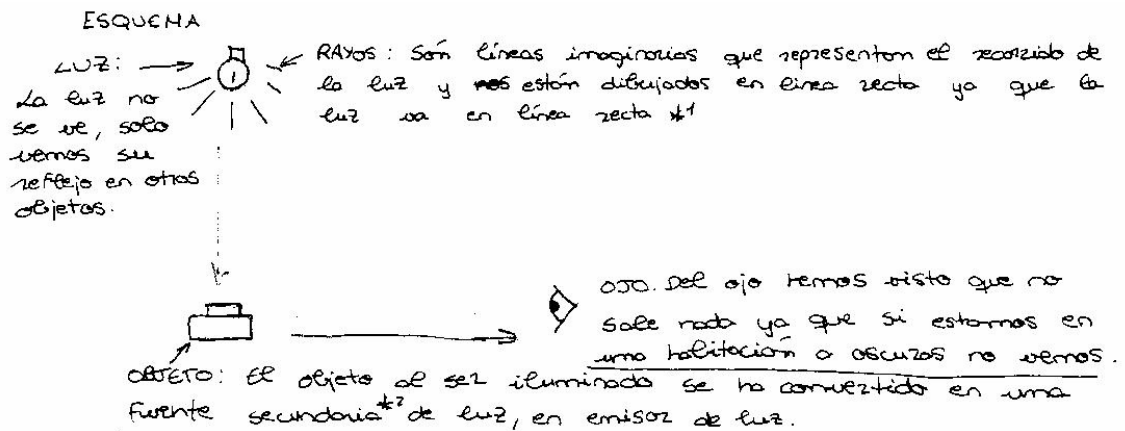 ESQUEMA
LUZ:
La luz no
se ve, solo
vemos su
reflejo en otros
objetos.
RAYOS: Són líneas imaginarias que representan el recorrido de
la luz y están dibujados en linea recta ya que la
luz va en línea recta *1
OJO. Del ojo hemos visto que no
sale nada ya que si estamos en
una habitación a oscuras no vemos.
OBJETO: El objeto al ser iluminado se ha convertido en una
fuente secundaria*2 de luz, en emisor de luz.